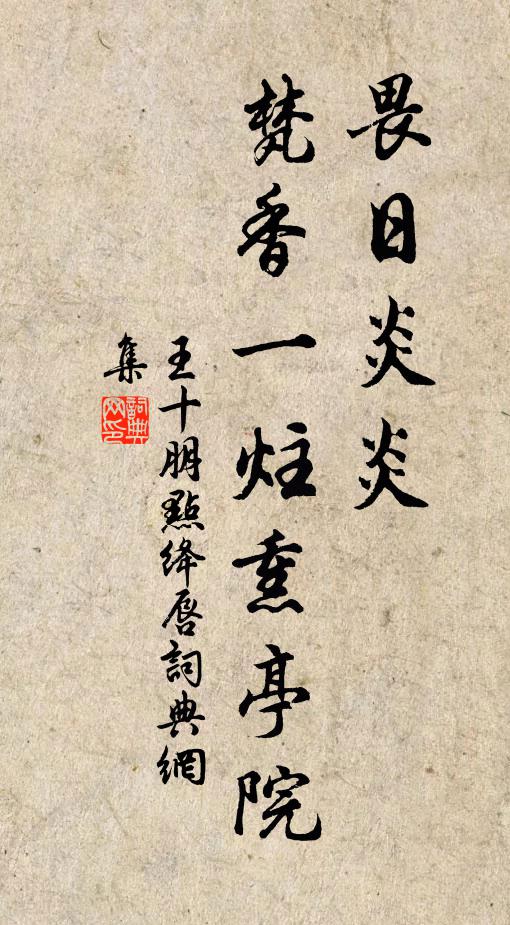 畏日炎炎
梵香一炷熏亭院
王十朋點絳唇詞典網
集
詞典
网印